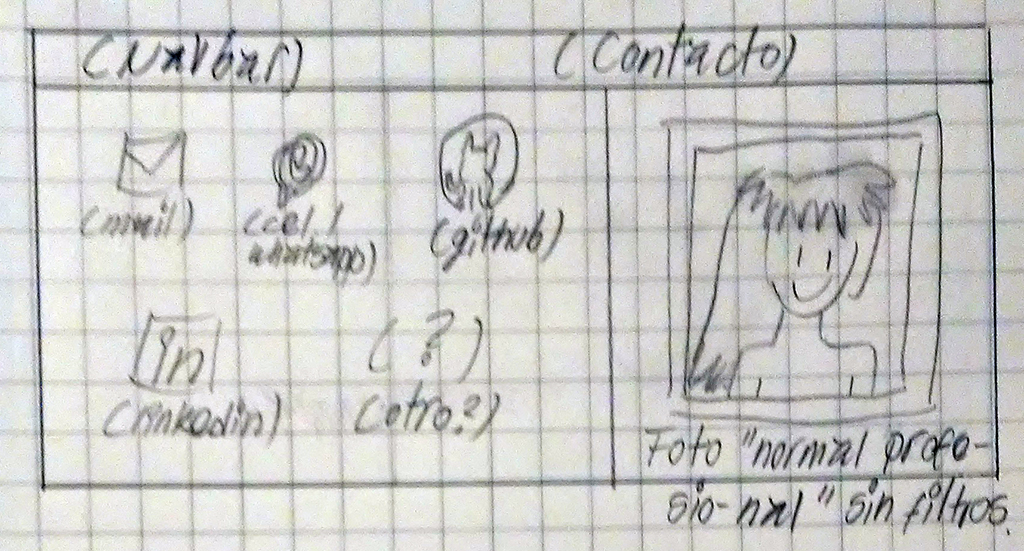 (Navbar) (Contacto)
(mail) (cel./ (github)
whatsapp)
in (?)
(linkedin) (otro?)
Foto "normal profe-
sio-nal" sin filtros.